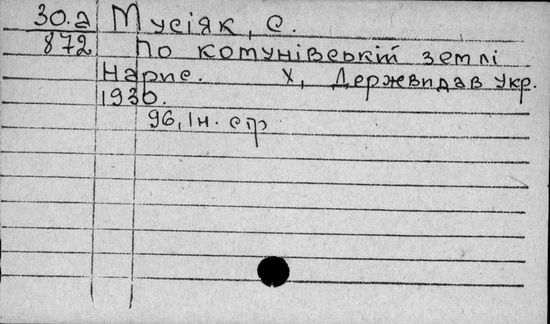 30.а Мусіяк, С.
872 По комунівській землі
Нарис. Х, Держвидав Укр.
1930.
96, Ін. стр